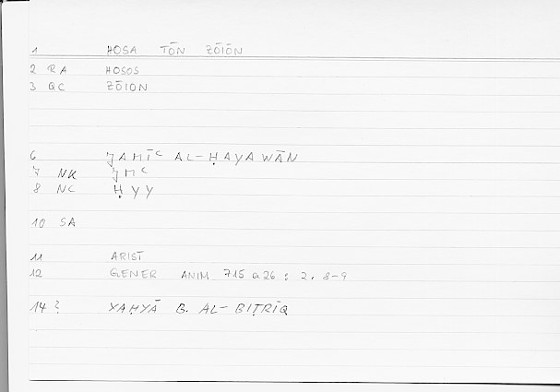 1 HOSA TŌN ZŌIŌN
2 RA HOSOS
3 GC ZŌION
6 ǦAMĪʿ AL-ḤAYAWĀN
7 NK ǦMʿ
8 NC ḤYY
10 SA
11 ARIST
12 GENER ANIM 715 a 26 : 2. 8-9
14 ? YAḤYĀ B. AL-BIṬRĪQ